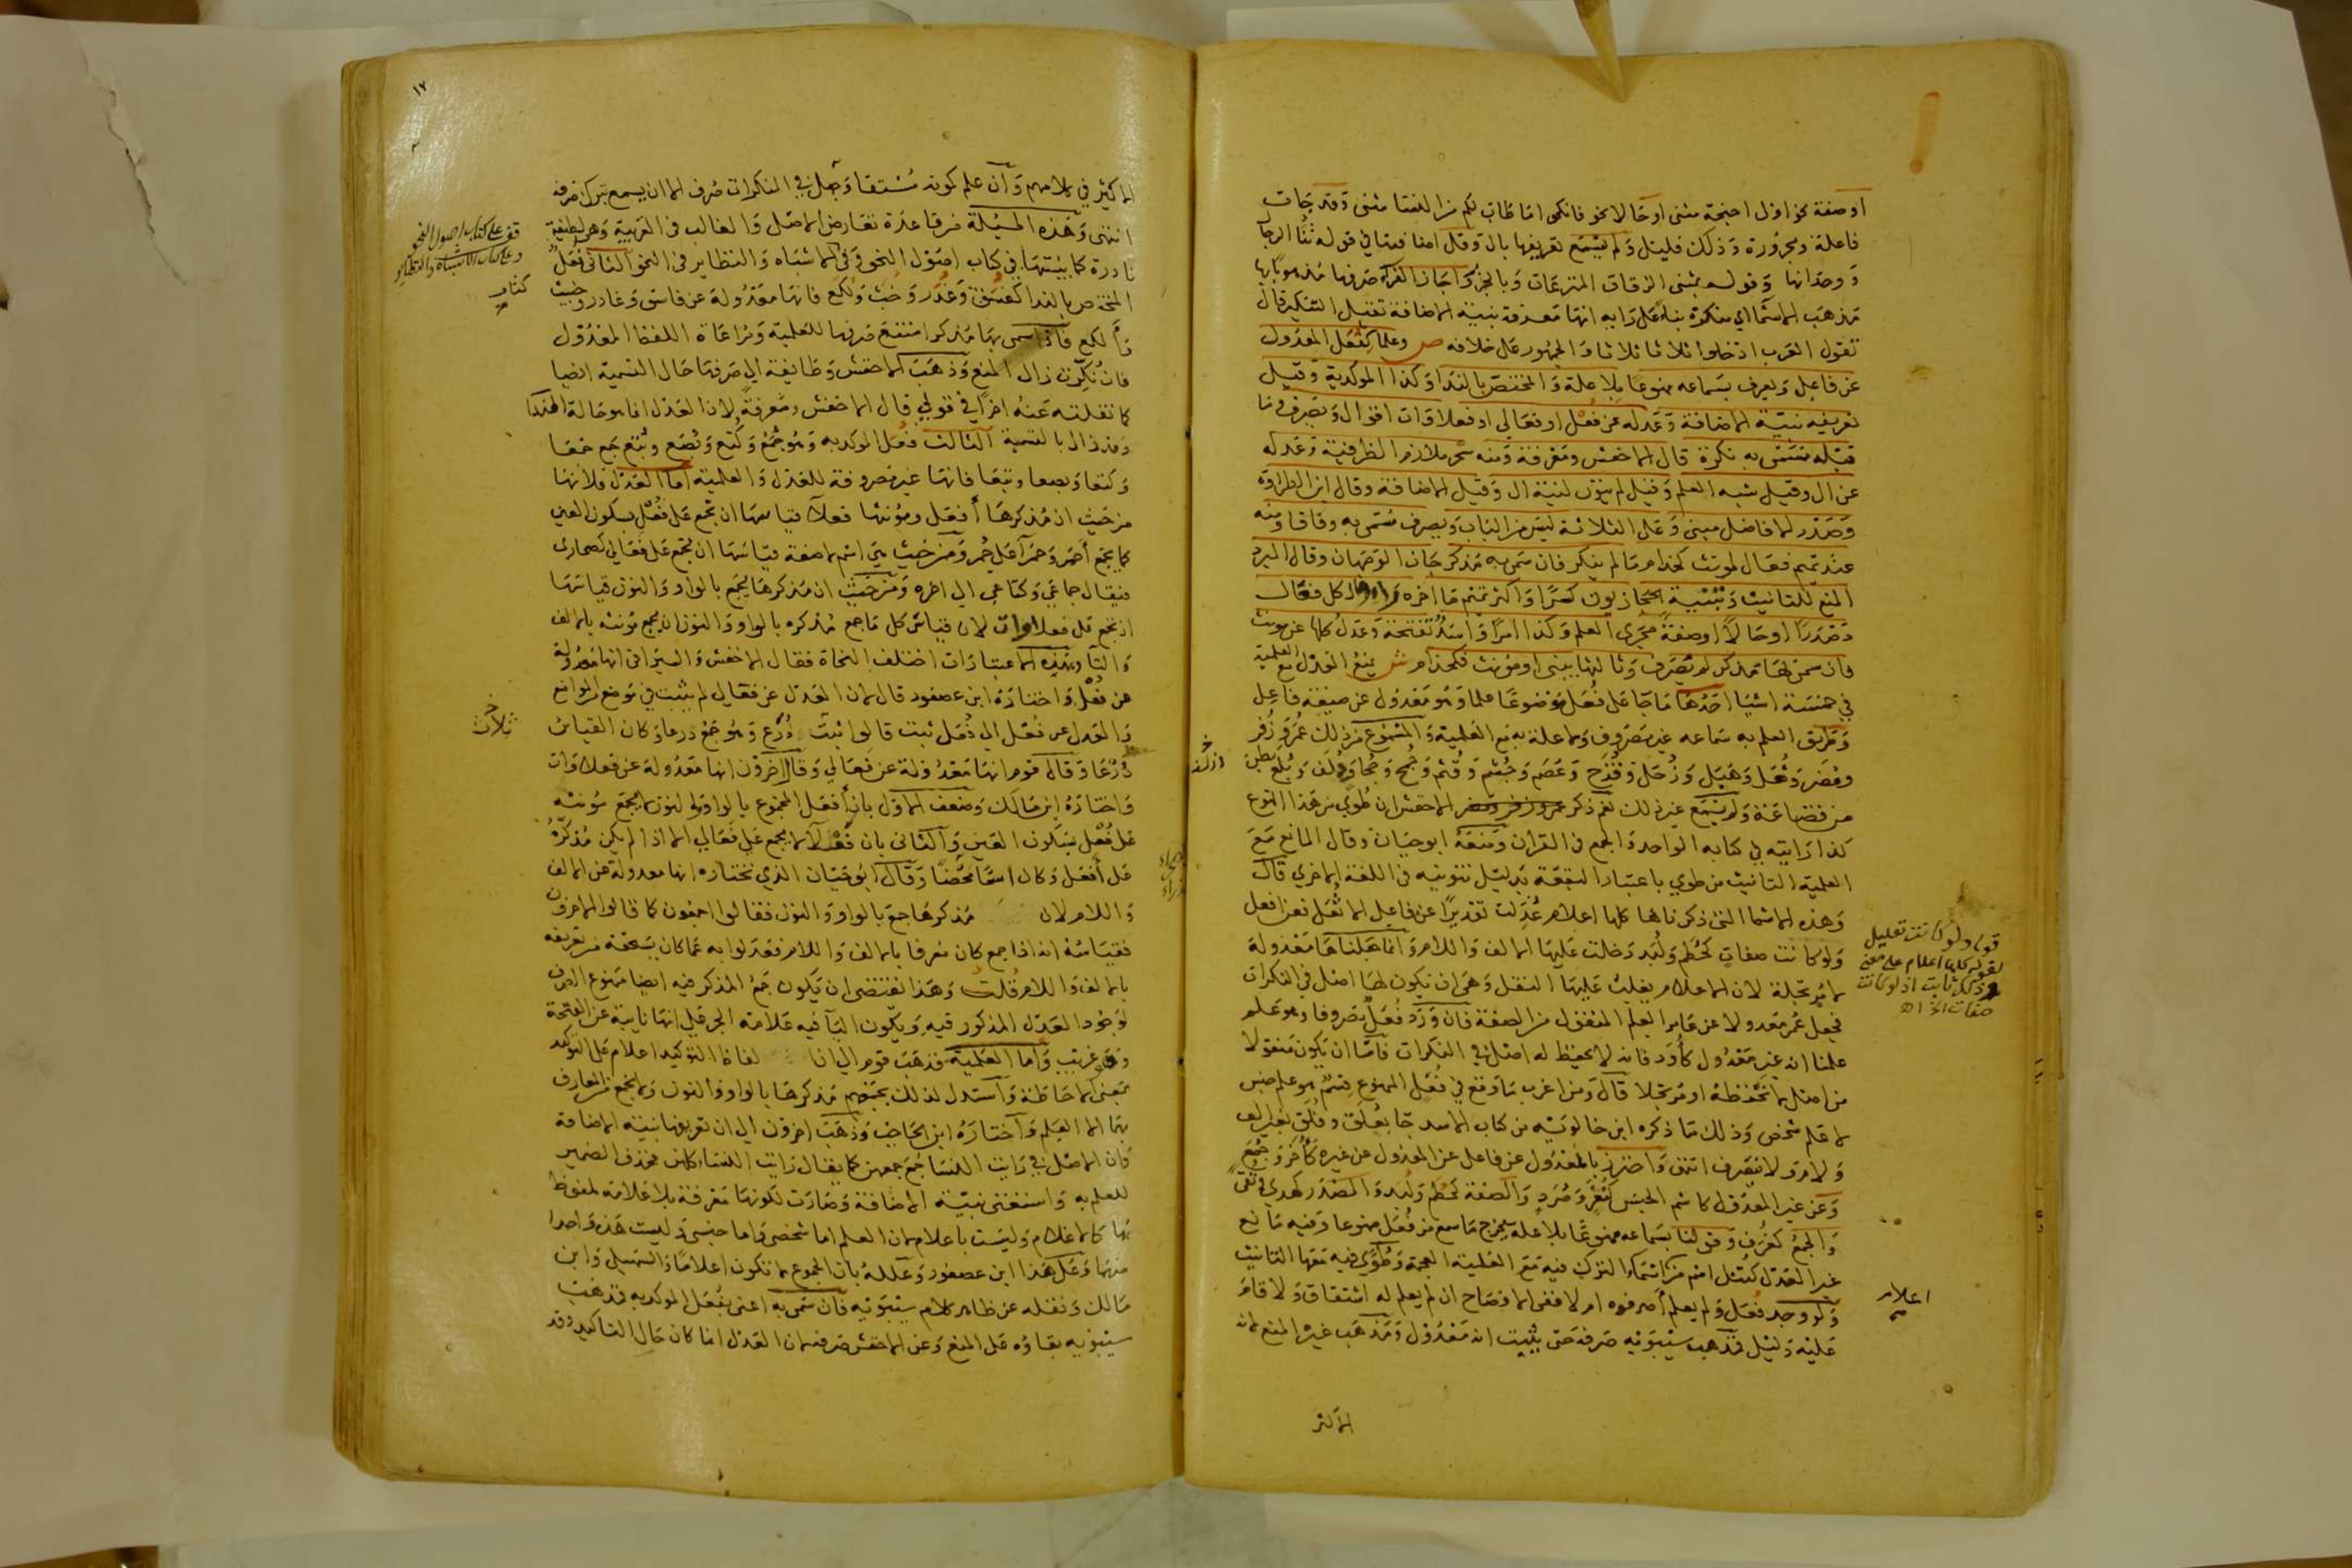 او صفة نحو اولى اجنحة مثنى او حالا نحو فانكحوا ما طاب لكم من النسا مثنى وقد جات
فاعلة ومجرورة وذلك قليل ولم يسمع تعريفها بال وقل اضافتها في قوله ثنا الرجا
ووحدانها وقوله بمثنى الزقاق المترعات وبالجزر واجاز الفرا صرفها مذهوبا بها
مذهب الاسما اي منكرة بنا على رايه انها معرفة بنية الاضافة تقبل التنكير قال
تقول العرب ادخلوا ثلاث ثلاثا والجمهور على خلافه ص وعلما كفعل المعدول
عن فاعل ويعرف بسماعه ممنوعا بلا علة والمختص بالندا وكذا الموكد به وقيل
تعريفه بنية الاضافة وعدله عن فعل او فعالى او فعلاوات اقوال ويصرف في ما
قبله مسمى به نكرة قال الاخفش ومعرفة ومنه سحر ملازم الظرفية وعدله
عن ال وقيل شبه العلم وقيل لم ينون لنية ال وقيل الاضافة وقال ابن الطراوة
وصدر الافاضل مبنى وعلى الثلاثة ليس من الباب ويصرف مسمى به وفاقا ومنه
عند تميم فعال لمونث كحذام ما لم ينكر فان سمى به مذكر جان الوجهان وقال المبرد
المنع للتانيث وتبنيه الحجازيون كسرا واكثر تميم ما اخره راء وال كل فعال
مصدرا او حالا او صفة مجرى العلم وكذا امرا واسد تفتحه وعدل كلها عن مونث
فان سمى بها مذكر لم تصرف وثالثها يبنى او مونث فكحذام ش يمنع العدل مع العلمية
في خمسة اشيا احدها ما جا على فعل موضوعا علما وهو معدول عن صيغة فاعل
وطريق العلم به سماعه غير مصروف ولا علة به مع العلمية والمسموع من ذلك عمر وزفر
ومضر وثعل وهبل وزحل وقزح وعصم وجشم وقثم وجمح وجحا ودلف وبلع بطن
من قضاعة ولم يسمع غير ذلك نعم ذكر الاخفش ان طوى من هذا النوع
كذا رايته في كتابه الواحد والجمع في القران ومنعه ابو حيان وقال المانع مع
العلمية التانيث من طوى باعتبار البقعة بدليل تنوينه في اللغة الاخرى قال
وهذه الاسما التي ذكرناها كلها اعلام عدلت تقديرا عن فاعل الا ثعل فعن افعل
ولو كانت صفات كحطم ولبد دخلت عليها الالف واللام وانما جعلناها معدولة
لا مرتجلة لان الاعلام يغلب عليها النقل وهي ان يكون لها اصل في النكرات
فجعل عمر معدولا عن عامر العلم المنقول من الصفة فان ورد فعل مصروفا وهو علم
علمنا انه غير معدول كأدد فانه لا يحفظ له اصل في النكرات فاما ان يكون منقولا
من اصل لا نحفظه او مرتجلا قال ومن اغرب ما وقع في فعل الممنوع قسم هو علم جنس
لا علم شخص وذلك ما ذكره ابن خالويه من كتاب الاسد جا بعلق وفلق بغير الف
ولام ولا تنصرف انتهى واحترز بالمعدول عن فاعل عن المعدول عن غيره كأخر وجمع
وعن غير المعدول كاسم الجنس كنغر وصرد والصفة كحطم ولبد والمصدر كهدى وتقى
والجمع كغرف وقولنا بسماعه ممنوعا بلا علة يخرج ما سمع من فعل ممنوعا وفيه مانع
غير العدل كتتل اسم من اسماء الترك فيه مع العلمية العجمة وطوى فيه معها التانيث
ولو وجد فعل ولم يعلم أصرفوه ام لا ففي الافصاح ان لم يعلم له اشتقاق ولا قام
عليه دليل فمذهب سيبويه صرفه حتى يثبت انه معدول ومذهب غيره المنع لانه
الاكثر
قوله ولو كانت تعليل
لقوله كلها اعلام على معنى
اعلام
١٧
الاكثر في كلامهم وان علم كونه مشتقا وجهل في النكرات صرف الا ان يسمع ترك صرفه
انتهى وهذه المسئلة من قاعدة تعارض الاصل والغالب في العربية وهي لطيفة
نادرة كما بينتها في كتاب اصول النحو وفي الاشباه والنظاير في النحو الثاني فعل
المختص بالندا كفسق وغدر وخبث ولكع فانها معدولة عن فاسق وغادر وخبيث
وألكع فاذا سمى بها مذكر امتنع صرفها للعلمية ومراعاة اللفظ المعدول
فان نكرت زال المنع وذهب الاخفش وطائفة الى صرفها حال التسمية ايضا
كما نقلته عنه اخرا في قولي قال الاخفش ومعرفة لان العدل انما هو حالة الندا
وقد زال بالتسمية الثالث فعل الموكد به وهو جمع وكتع وبصع وبتع جمع جمعا
وكتعا وبصعا وبتعا فانها غير مصروفة للعدل والعلمية اما العدل فلانها
من حيث ان مذكرها أفعل ومونثها فعلا قياسها ان تجمع على فعل بسكون العين
كما يجمع أحمر وحمرآ على حمر ومن حيث هي اسم لا صفة قياسها ان تجمع على فعالي كصحارى
فيقال جماعى وكتاعى الى اخره ومن حيث ان مذكرها يجمع بالواو والنون قياسها
ان تجمع على فعلاوات لان قياس كل ما جمع مذكره بالواو والنون ان يجمع مونثه بالالف
والتا وبهذه الاعتبارات اختلف النحاة فقال الاخفش والسيرافي انها معدولة
عن فعل واختاره ابن عصفور قال لان العدل عن فعالى لم يثبت في موضع المواضع
والعدل عن فعل الى فعل ثبت قالوا ثلاث درع وهو جمع درعا وكان القياس
درعا وقال قوم انها معدولة عن فعالى وقال اخرون انها معدولة عن فعلاوات
واختاره ابن مالك وضعف الاول بان أفعل المجموع بالواو والنون لا يجمع مونثه
على فعل بسكون العين والثاني بان فعلاء لا يجمع على فعالى الا اذا لم يكن مذكره
على أفعل وكان اسما محضا وقال ابو حيان الذي نختاره انها معدولة عن الالف
واللام لان مذكرها جمع بالواو والنون فقالوا اجمعون كما قالوا الاخرون
فقياسه انه اذا جمع كان معرفا بالالف واللام فعدلوا به عما كان يستحقه من تعريفه
بالالف واللام قلت وهذا يقتضى ان يكون جمع المذكر فيه ايضا ممنوع الصرف
لوجود العدل المذكور فيه ويكون اليآ فيه علامة الجر على انها نايبة عن الفتحة
وهو غريب واما العلمية فذهب قوم الى ان الفاظ التوكيد اعلام على التوكيد
بمعنى الاحاطة واستدل لذلك بجمعهم مذكرها بالواو والنون ولا يجمع من المعارف
بها الا العلم واختاره ابن الحاجب وذهب اخرون الى ان تعريفها بنية الاضافة
وان الاصل في رايت النسا جمع جمعهن كما يقال رايت النساء كلهن فحذف الضمير
للعلم به واستغنى بنية الاضافة وصارت لكونها معرفة بلا علامة ملفوظ
بها كالاعلام وليست باعلام لان العلم اما شخصى واما جنسى وليست هذه واحدا
منهما وعلى هذا ابن عصفور وعلله بان الجموع لا تكون اعلاما والسهيلى وابن
مالك ونقله عن ظاهر كلام سيبويه فان سمى به اعنى بفعل الموكد به فذهب
سيبويه بقاؤه على المنع وعن الاخفش صرفه لان العدل انما كان حال التاكيد وقد
قف على كتاب اصول النحو
وعلى كتاب الاشباه والنظائر
ثلاث